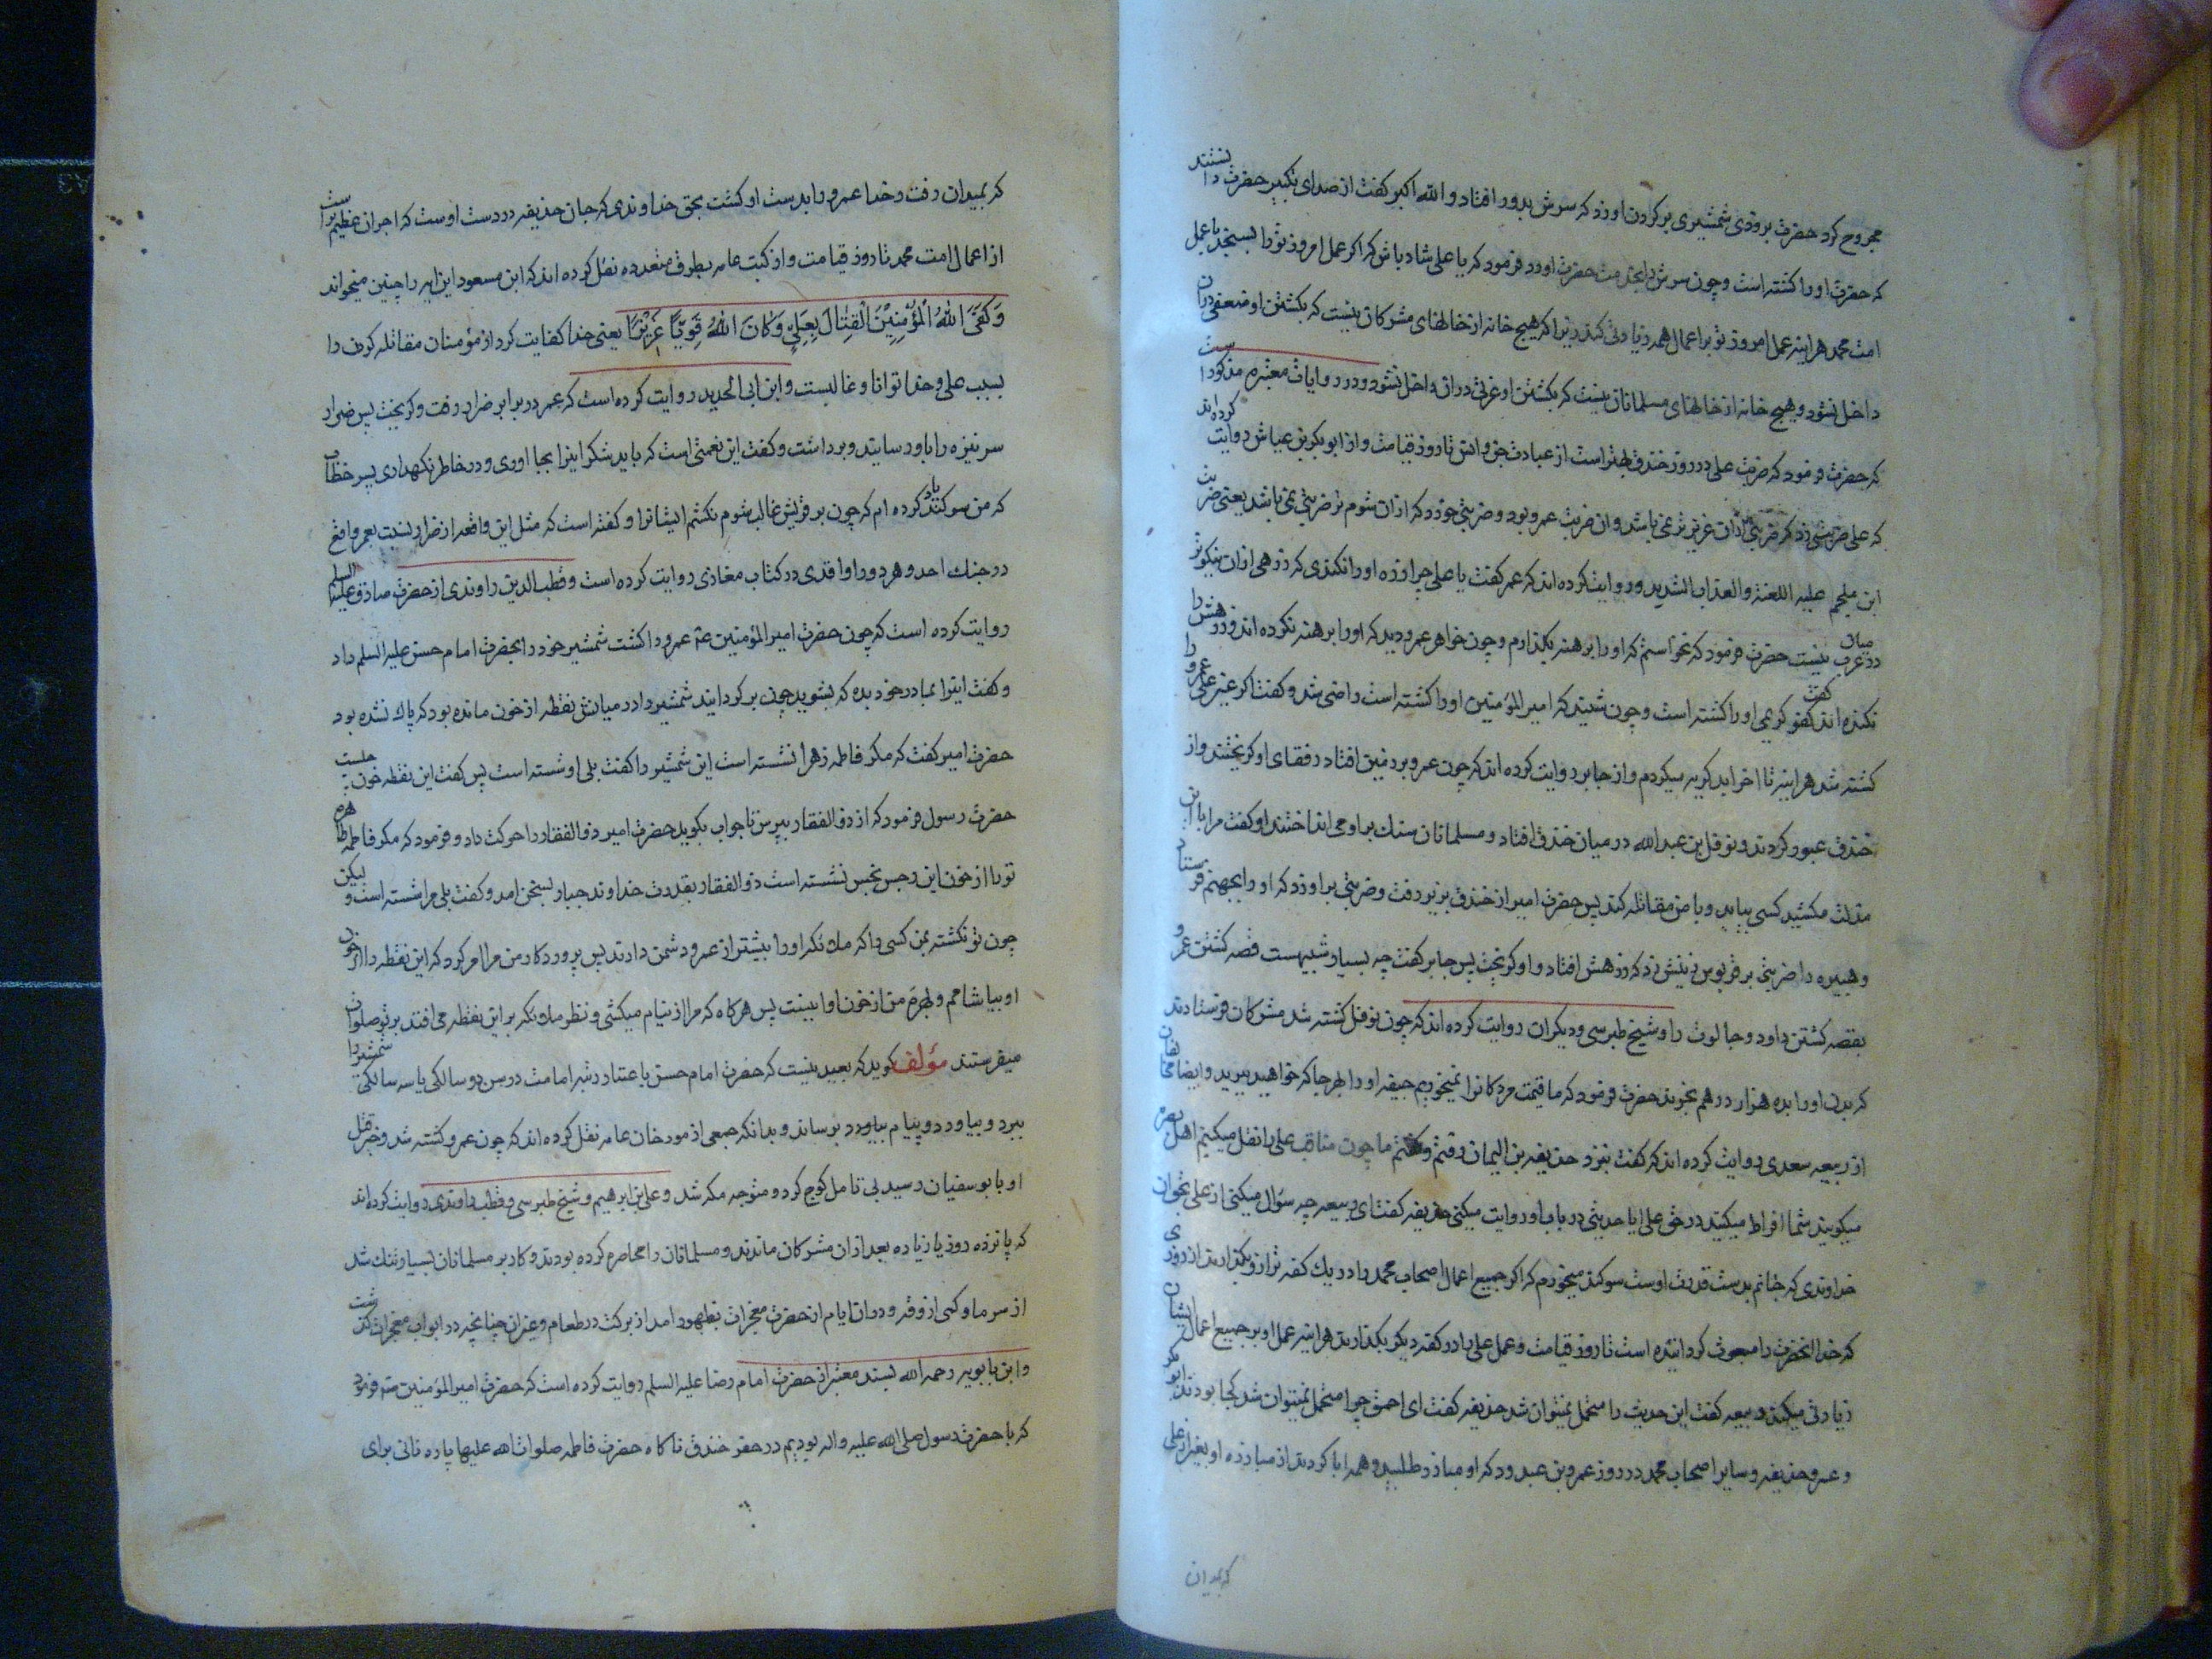 مجروح کرد حضرت بزودی شمشیری بر کردن او زد که سرش بدور افتاد و الله اکبر کفت از صدای تکبیر حضرت دانستند
که حضرت او را کشته است و چون سرش را بخدمت حضرت اورد فرمود که یا علی شاد باش که اکر عمل امروز تو را بسنجند با عمل
امت محمد هراینه عمل امروز تو بر اعمال همه زیادتی کند زیرا که هیچ خانه از خانهای مشرکان نیست که بکشتن او ضعفی دران
داخل نشود و هیچ خانه از خانهای مسلمانان نیست که بکشتن او عزتی دران داخل نشود و در روایات معتبره مذکور است
که حضرت فرمود که ضربت علی در روز خندق بهتر است از عبادت جن و انس تا روز قیامت و از ابو بکر بن عیاش روایت کرده اند
که علی ضربتی زد که ضربتی از ان عزیزتر نمی باشد و ان ضربت عمرو بود و ضربتی خورد که ازان شوم تر ضربتی نمی باشد یعنی ضربت
ابن ملجم علیه اللعنة و العذاب الشدید و روایت کرده اند که عمر کفت یا علی چرا زره او را نکندی که زرهی ازان نیکوتر
در میان عرب نیست حضرت فرمود که نخواستم که او را برهنه بکذارم و چون خواهر عمرو دید که او را برهنه نکرده اند و زرهش را
نکنده اند کفت کفو کریمی او را کشته است و چون شنید که امیر المؤمنین او را کشته است راضی شد و کفت اکر غیر علی عمرو را
کشته شد هراینه تا اخر ابد کریه میکردم و از جابر روایت کرده اند که چون عمرو بر زمین افتاد رفقای او کریختند و از
خندق عبور کردند و نوفل بن عبد الله در میان خندق افتاد و مسلمانان سنك بر او می انداختند او کفت مرا باین
مذلت مکشید کسی بیاید و با من مقاتله کند پس حضرت امیر از خندق بزیر رفت و ضربتی بر او زد که او را بجهنم فرستاد
و هبیره را ضربتی بر قربوس زینش زد که زرهش افتاد و او کریخت پس جابر کفت چه بسیار شبیهست قصه کشتن عمرو
بقصه کشتن داود و جالوت را و شیخ طبرسی و دیکران روایت کرده اند که چون نوفل کشته شد مشرکان فرستادند
که بدن او را بده هزار درهم بخرند حضرت فرمود که ما قیمت مردکانرا نمیخوریم جیفه او را بهر جا که خواهید ببرید و ایضا مخالفان
از ربیعه سعدی روایت کرده اند که کفت بنزد حذیفه بن الیمان رفتم و کفتم ما چون مناقب علی را نقل میکنیم اهل بصره
میکویند شما افراط میکنید در حق علی ایا حدیثی در باب او روایت میکنی حذیفه کفت ای ربیعه چه سؤال میکنی از علی بحق ان
خداوندی که جانم بدست قدرت اوست سوکند میخورم که اکر جمیع اعمال اصحاب محمد را در یك کفه ترازو بکذارند از روزی
که خدا انحضرت را مبعوث کردانیده است تا روز قیامت و عمل علی را در کفه دیکر بکذارند هراینه عمل او بر جمیع اعمال ایشان
زیادتی میکند ربیعه کفت این حدیث را متحمل نمیتوان شد حذیفه کفت ای احمق چرا متحمل نمیتوان شد کجا بودند ابو بکر
و عمر و حذیفه و سایر اصحاب محمد در روز عمرو بن عبدود که او مبارز طلبید و همه ابا کردند از مبارزه او بغیر از علی
که بمیدان
که بمیدان رفت و خدا عمرو را بدست او کشت بحق خداوندی که جان حذیفه در دست اوست که اجر ان عظیم تر است
از اعمال امت محمد تا روز قیامت و از کتب عامه بطرق متعدده نقل کرده اند که ابن مسعود این ایه را چنین میخواند
وَکَفَی اللهُ الْمُؤْمِنِیْنَ الْقِتٰالَ بِعَلِیٍّ وَکٰانَ اللهُ قَوِیّاً عَزِیْزاً یعنی خدا کفایت کرد از مؤمنان مقاتله کردن را
بسبب علی و خدا توانا و غالبست و ابن ابی الحدید روایت کرده است که عمر در برابر ضرار رفت و کریخت پس ضرار
سر نیزه را باو رسانید و برداشت و کفت این نعمتی است که باید شکر اینرا بجا اوری و در خاطر نکهداری پسر خطاب
که من سوکند یاد کرده ام که چون بر قریش غالب شوم نکشم ایشانرا و کفته است که مثل این واقعه از ضرار نسبت بعمر واقع
در جنك احد و هر دو را واقدی در کتاب مغازی روایت کرده است و قطب الدین راوندی از حضرت صادق علیه السلم
روایت کرده است که چون حضرت امیر المؤمنین عمرو را کشت شمشیر خود را بحضرت امام حسن علیه السلم داد
و کفت اینرا بمادر خود بده که بشوید چون بر کردانید شمشیر را در میانش نقطه از خون مانده بود که پاك نشده بود
حضرت امیر کفت که مکر فاطمه زهرا نشسته است این شمشیر را کفت بلی او شسته است پس کفت این نقطه خون چیست
حضرت رسول فرمود که از ذو الفقار بپرس تا جواب بکوید حضرت امیر ذو الفقار را حرکت داد و فرمود که مکر فاطمه طاهره
تو را از خون این رجس نجس نشسته است ذو الفقار بقدرت خداوند جبار بسخن امد و کفت بلی مرا شسته است و لیکن
چون تو نکشته بمن کسی را که ملائکه او را بیشتر از عمرو دشمن دارند پس پروردکار من مرا امر کرد که این نقطه را از خون
او بیاشامم و بهرهٔ من از خون او اینست پس هرکاه که مرا از نیام میکشی و نظر ملائکه بر این نقطه می افتد بر تو صلوات
میفرستند مؤلف کوید که بعید نیست که حضرت امام حسن باعتبار رتبه امامت در سن دو سالکی یا سه سالکی شمشیر را
ببرد و بیاورد و پیام بیاورد و برساند و بدانکه جمعی از مورخان عامه نقل کرده اند که چون عمرو کشته شد و خبر قتل
او بابو سفیان رسید بی تامل کوچ کرد و متوجه مکه شد و علی بن ابرهیم و شیخ طبرسی و قطب راوندی روایت کرده اند
که پانزده روز یا زیاده بعد از ان مشرکان ماندند و مسلمانان را محاصره کرده بودند و کار بر مسلمانان بسیار تنك شد
از سرما و کمی ازوقه و دران ایام از حضرت معجزات بظهور امد از برکت در طعام و غیران چنانچه در ابواب معجزات کذشت
و ابن بابویه رحمه الله بسند معتبر از حضرت امام رضا علیه السلم روایت کرده است که حضرت امیر المؤمنین فرمود
که با حضرت رسول صلی الله علیه و اله بودیم در حفر خندق ناکاه حضرت فاطمه صلوات الله علیها پاره نانی برای